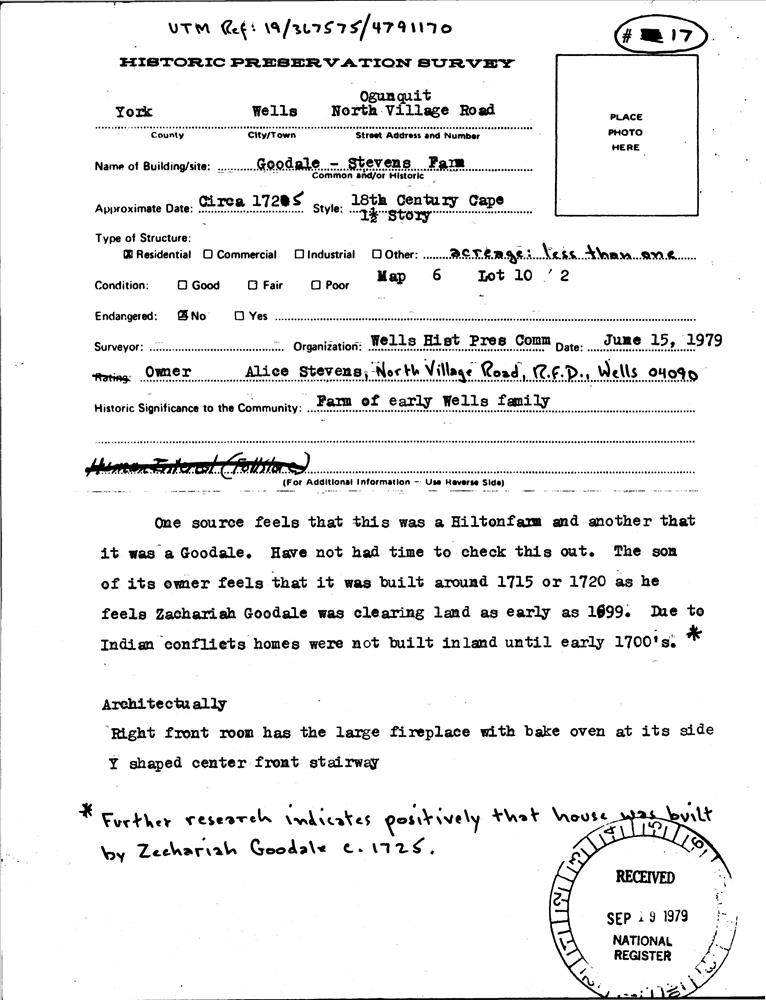 UTM Ref: 19/367575/4791170
# 17
HISTORIC PRESERVATION SURVEY
PLACE
PHOTO
HERE
Ogunquit
York Wells North Village Road
County City/Town Street Address and Number
Name of Building/site: Goodale - Stevens Farm
Common and/or Historic
Approximate Date: Circa 1725 Style: 18th Century Cape
1½ Story
Type of Structure:
☒ Residential ☐ Commercial ☐ Industrial ☐ Other: acreage: less than one
Condition: ☐ Good ☐ Fair ☐ Poor Map 6 Lot 10 2
Endangered: ☒ No ☐ Yes
Surveyor: Organization: Wells Hist Pres Comm Date: June 15, 1979
Rating: Owner Alice Stevens, North Village Road, R.F.D., Wells 04090
Historic Significance to the Community: Farm of early Wells family
Human Interest (Folklore)
(For Additional Information - Use Reverse Side)
One source feels that this was a Hiltonfarm and another that
it was a Goodale. Have not had time to check this out. The son
of its owner feels that it was built around 1715 or 1720 as he
feels Zachariah Goodale was clearing land as early as 1699. Due to
Indian conflicts homes were not built inland until early 1700's. *
Architectually
Right front room has the large fireplace with bake oven at its side
Y shaped center front stairway
* Further research indicates positively that house was built
by Zechariah Goodale c. 1725.
RECEIVED
SEP 19 1979
NATIONAL
REGISTER